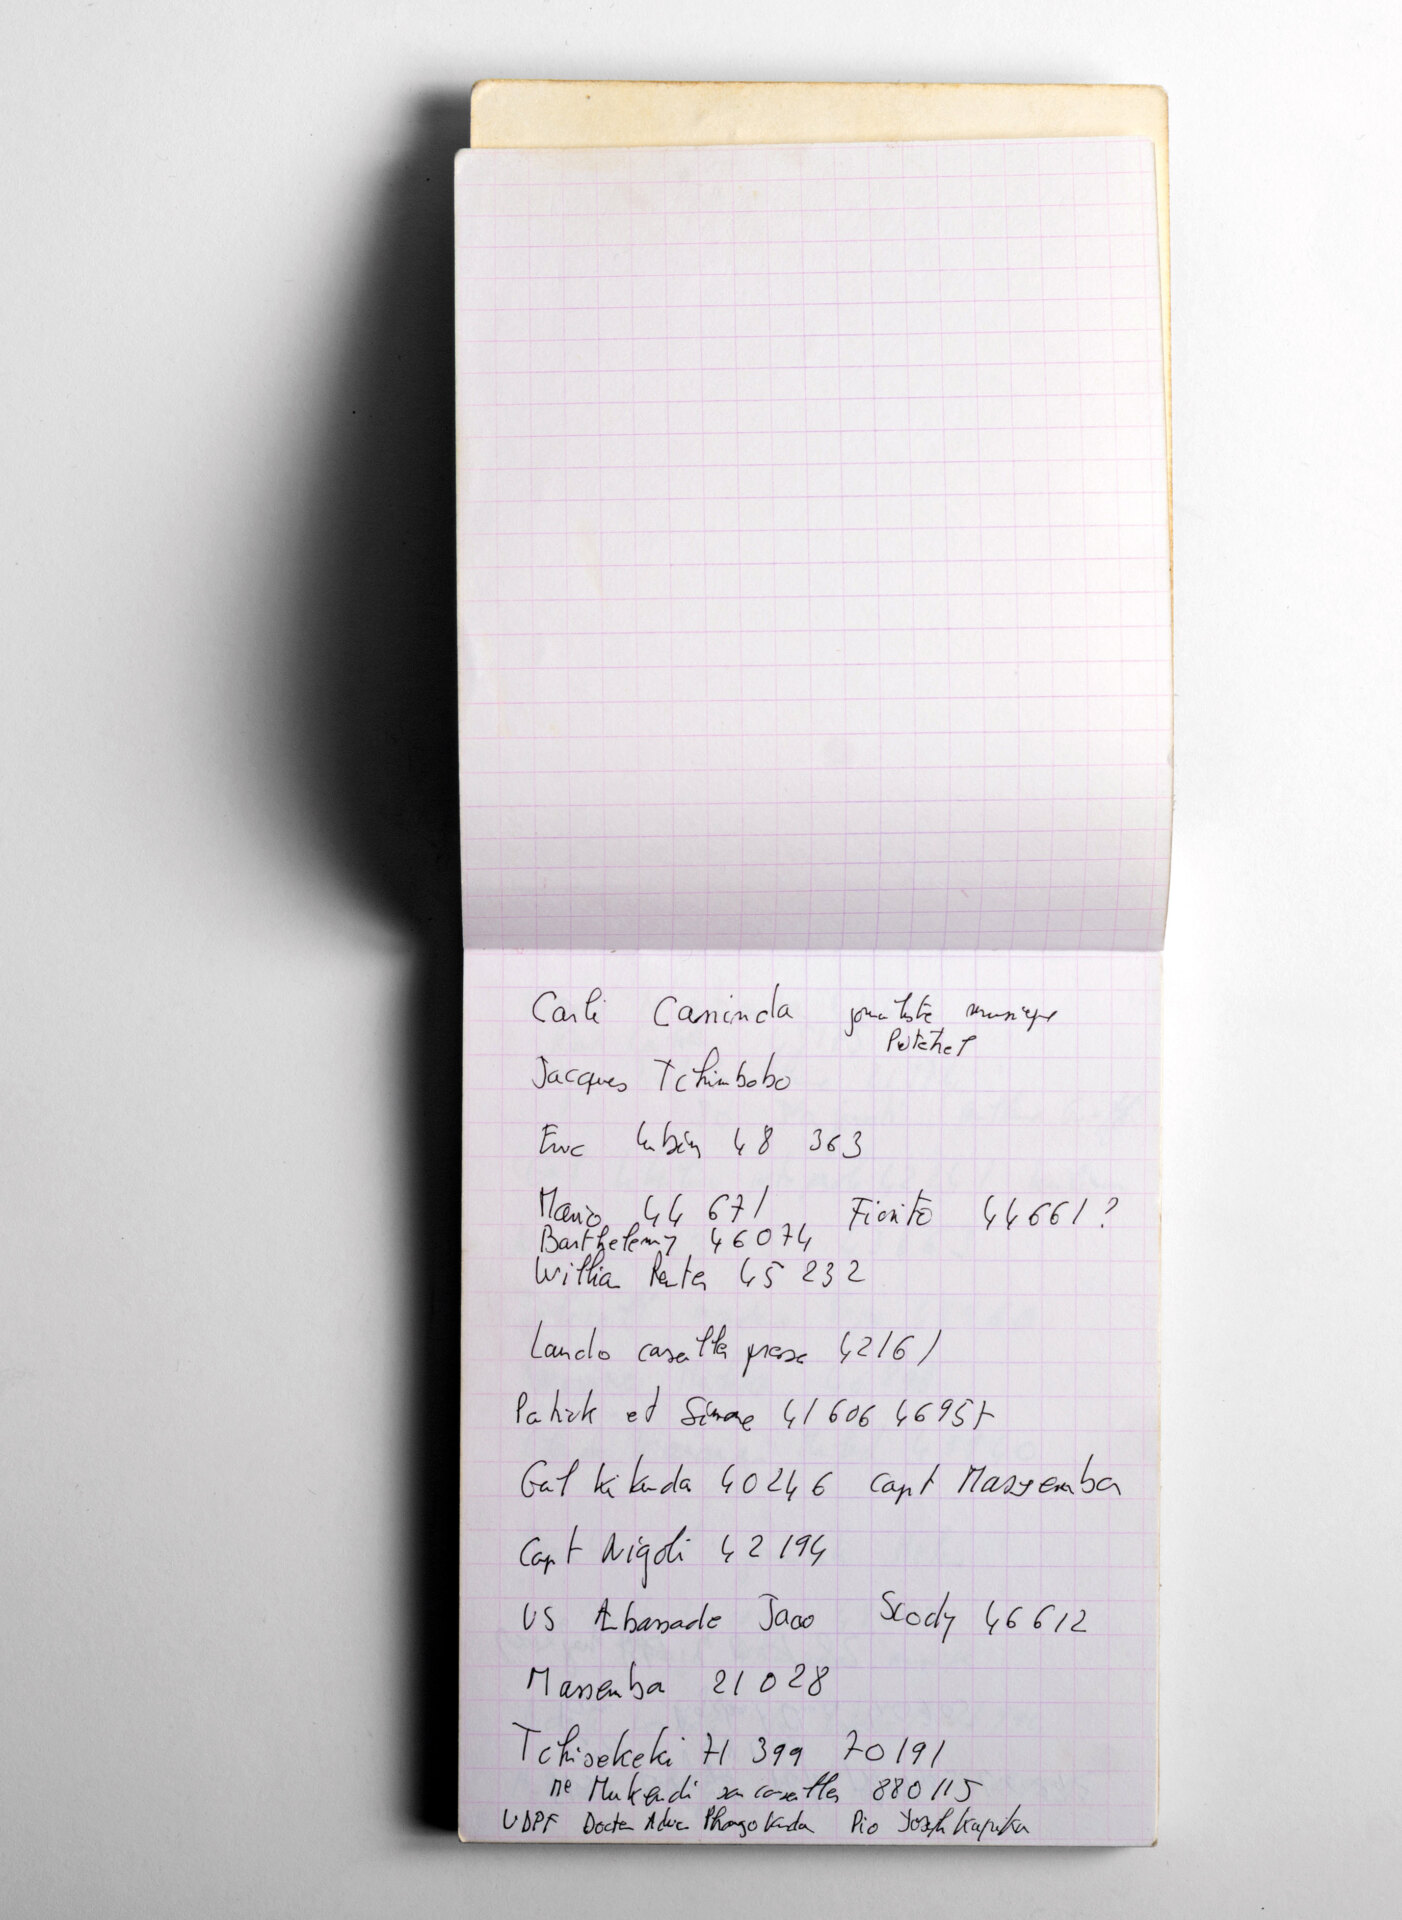 Carli Caninda journaliste musique
Jacques Tchimbobo
Eric Lubin 48 363
Mario 44 671 Fiorito 44661?
Barthelemy 46074
William 45 232
Lando casetta presse 42161
Patrick et Simone 41606 46957
Gal Kikunda 40246 capt Massemba
Capt Nigoli 42194
US Ambassade Scody 46612
Massemba 21028
Tchisekeki 71 399 70191
me Mukendi 880115
UDPF Docteur Pio Joseph Kapika